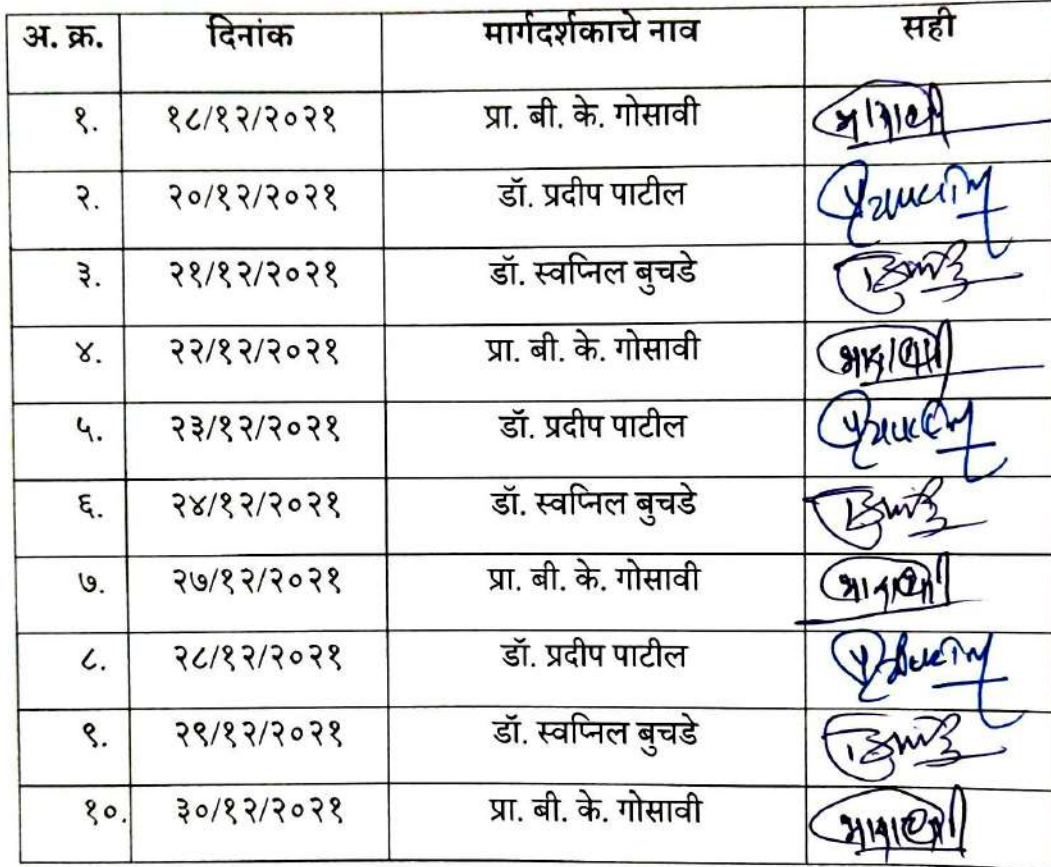 अ. क्र. दिनांक मार्गदर्शकाचे नाव सही
१. १८/१२/२०२१ प्रा. बी. के. गोसावी
२. २०/१२/२०२१ डॉ. प्रदीप पाटील
३. २१/१२/२०२१ डॉ. स्वप्निल बुचडे
४. २२/१२/२०२१ प्रा. बी. के. गोसावी
५. २३/१२/२०२१ डॉ. प्रदीप पाटील
६. २४/१२/२०२१ डॉ. स्वप्निल बुचडे
७. २७/१२/२०२१ प्रा. बी. के. गोसावी
८. २८/१२/२०२१ डॉ. प्रदीप पाटील
९. २९/१२/२०२१ डॉ. स्वप्निल बुचडे
१०. ३०/१२/२०२१ प्रा. बी. के. गोसावी